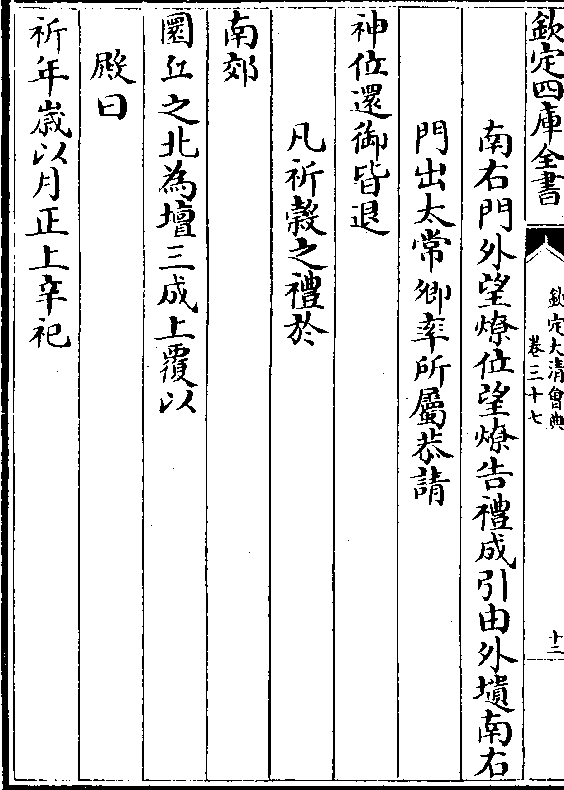 欽定四庫全書
欽定大清會典
卷三十七
十二
南右門外望燎位望燎告禮成引由外壝南右
門出太常卿率所屬恭請
神位還御皆退
凡祈穀之禮於
南郊
圜丘之北為壇三成上覆以
殿曰
祈年歲以月正上辛祀